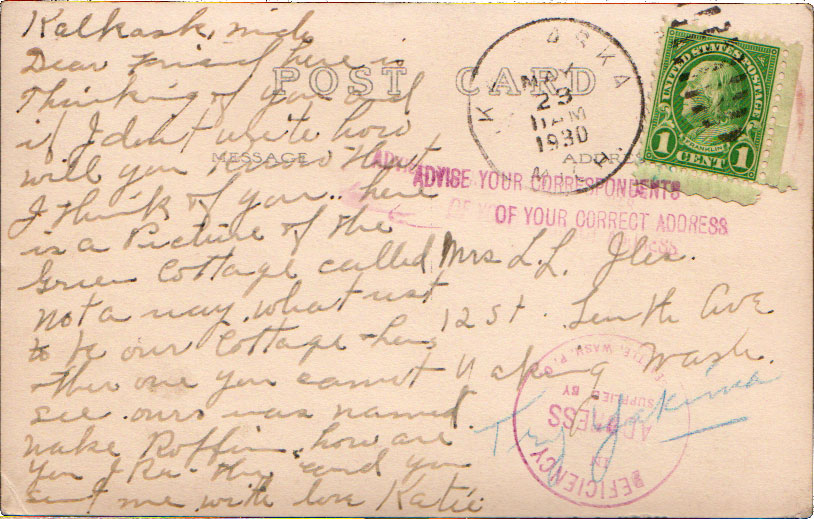 Kalkask, mich
Dear Friend here is
Thinking of you and
if I dont write how
will you know that
I think of you.. here
is a Picture of the
Green Cottage called
Not a way. what ust
to be our Cottage
other one you cannot
see. ours was named
how are
you and you
sent me with love Katie
POST CARD
MESSAGE
ADDRESS
KALKASKA
MAY
23
11 AM
1930
MICH.
UNITED STATES POSTAGE
FRANKLIN
1 CENT 1
ADVISE YOUR CORRESPONDENTS
OF YOUR CORRECT ADDRESS
Mrs L.L. Iles.
12 St. Tenth Ave
Yaking Wash.
Try Yakima
DEFICIENCY
IN
ADDRESS
SUPPLIED BY
SEATTLE, WASH. P. O.